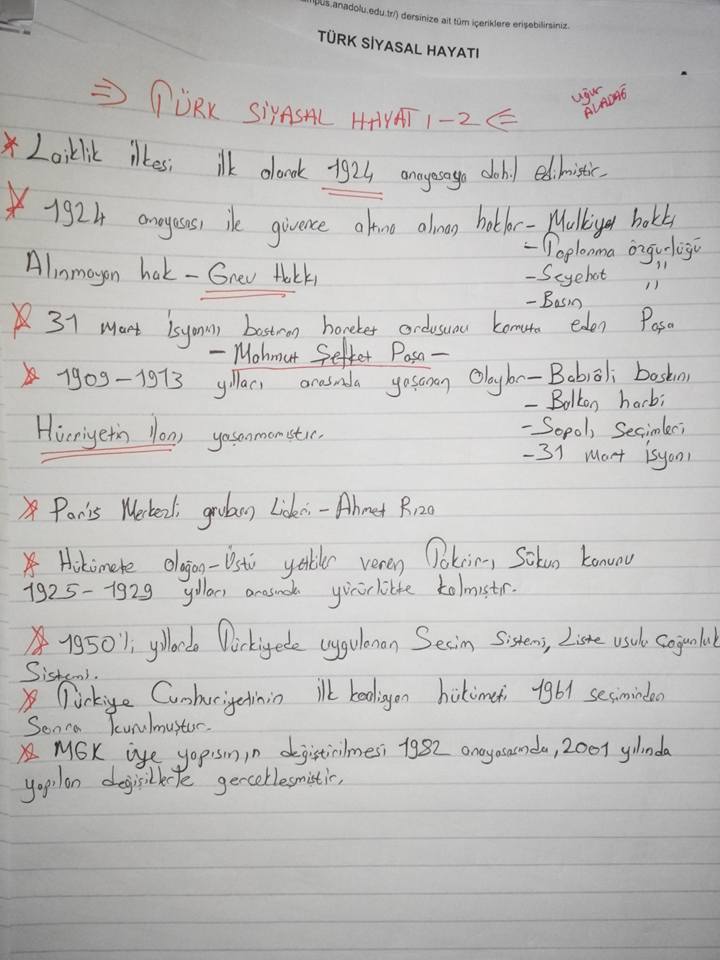 mpus.anadolu.edu.tr/) dersinize ait tüm içeriklere erişebilirsiniz.
TÜRK SİYASAL HAYATI
⇒ TÜRK SİYASAL HAYATI-2 ⇐
Uğur
ALADAĞ
* Laiklik ilkesi ilk olarak 1924 anayasaya dahil edilmiştir.
* 1924 anayasası ile güvence altına alınan haklar - Mulkiyet hakkı
- Toplanma özgürlüğü
Alınmayan hak - Grev Hakkı
- Seyehat "
- Basın "
* 31 Mart İsyanını bastıran hareket ordusunu komuta eden Paşa
- Mahmut Şefket Paşa -
* 1909-1913 yılları arasında yaşanan Olaylar - Babıâli baskını
- Balkan harbi
Hürriyetin ilanı yaşanmamıştır.
- Sopalı Seçimleri
- 31 Mart İsyanı
* Paris Merkezli grubun Lideri - Ahmet Rıza
* Hükümete Olağan-Üstü yetkiler veren Takrir-i Sükun kanunu
1925-1929 yılları arasında yürürlükte kalmıştır.
* 1950'li yıllarda Türkiyede uygulanan Seçim Sistemi, Liste usulu Çoğunluk
Sistemi.
* Türkiye Cumhuriyetinin ilk koalisyon hükümeti 1961 seçiminden
Sonra kurulmuştur.
* MGK üye yapısının değiştirilmesi 1982 anayasasında, 2001 yılında
yapılan değişiklerle gerçekleşmiştir.